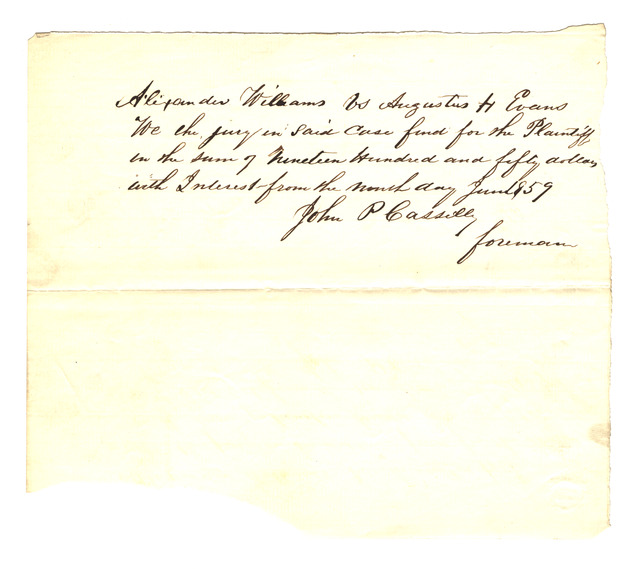 Alixander Williams Vs Augustus H Evans
We the jury in Said Case find for the Plaintiff
in the sum of Nineteen Hundred and fifty dollars
with Interest from the ninth day June 1859
John P Cassilly
foreman